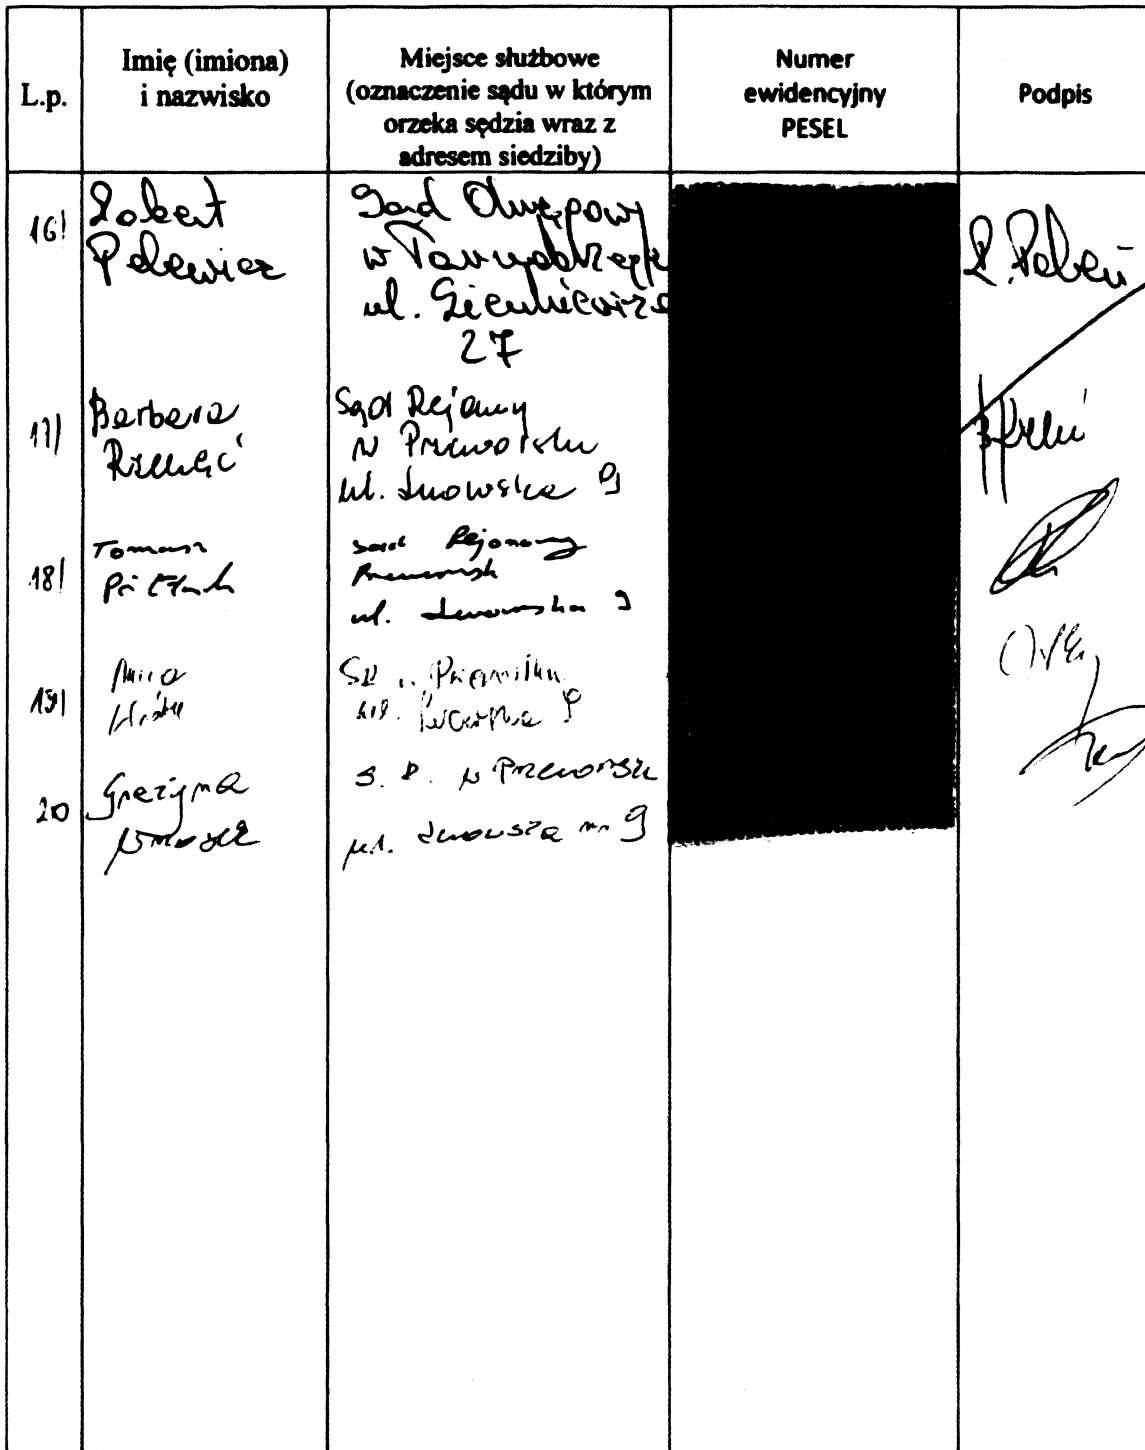 L.p.
Imię (imiona)
i nazwisko
Miejsce służbowe
(oznaczenie sądu w którym
orzeka sędzia wraz z
adresem siedziby)
Numer
ewidencyjny
PESEL
Podpis
16)
Robert
Pelewicz
Sąd Okręgowy
w Tarnobrzegu
ul. Sienkiewicza
27
17)
Barbara
Sąd Rejonowy
w Przeworsku
ul. Lwowska 9
18)
Tomasz
Sąd Rejonowy
Przeworsk
ul. Lwowska 9
19)
SR
ul.
9
20
Grażyna
S. R. w Przeworsku
ul. Lwowska nr 9